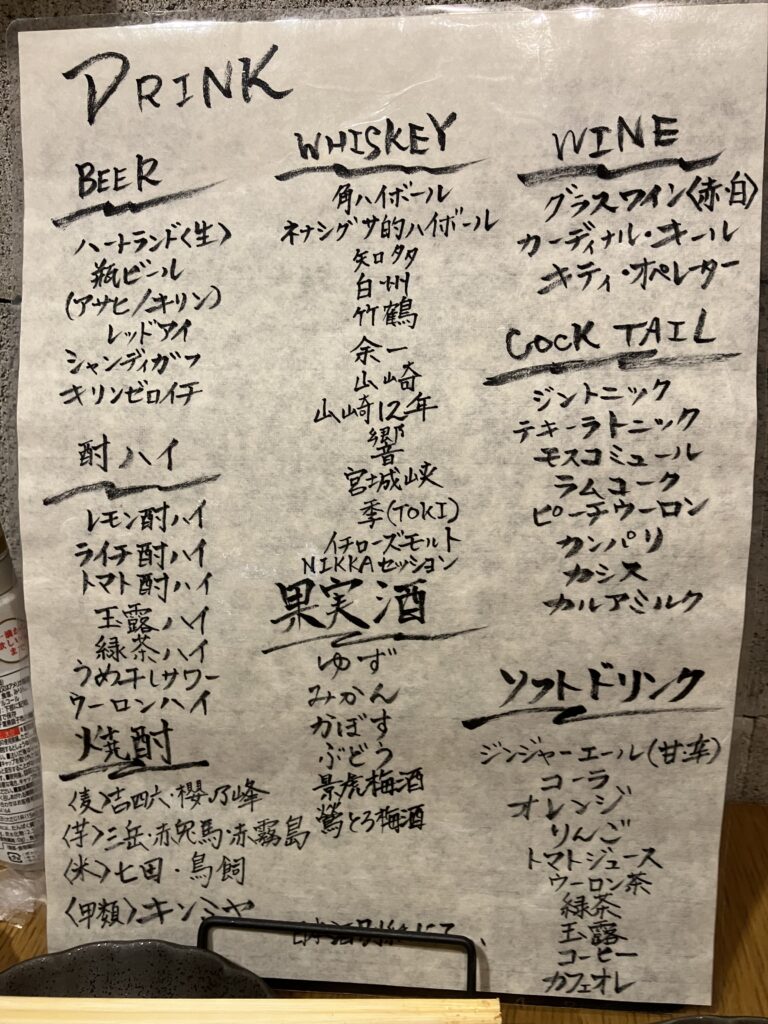 DRINK
BEER
ハートランド〈生〉
瓶ビール
(アサヒ/キリン)
レッドアイ
シャンディガフ
キリンゼロイチ
酎ハイ
レモン酎ハイ
ライチ酎ハイ
トマト酎ハイ
玉露ハイ
緑茶ハイ
うめ干しサワー
ウーロンハイ
焼酎
〈麦〉吉四六・櫻乃峰
〈芋〉三岳・赤兎馬・赤霧島
〈米〉七田・鳥飼
〈甲類〉キンミヤ
WHISKEY
角ハイボール
ネナシグサ的ハイボール
知多
白州
竹鶴
余一
山崎
山崎12年
響
宮城峡
季(TOKI)
イチローズモルト
NIKKAセッション
果実酒
ゆず
みかん
かぼす
ぶどう
景虎梅酒
鶯とろ梅酒
WINE
グラスワイン〈赤・白〉
カーディナル・キール
キティ・オペレーター
COCK TAIL
ジントニック
テキーラトニック
モスコミュール
ラムコーク
ピーチウーロン
カンパリ
カシス
カルアミルク
ソフトドリンク
ジンジャーエール(甘・辛)
コーラ
オレンジ
りんご
トマトジュース
ウーロン茶
緑茶
玉露
コーヒー
カフェオレ